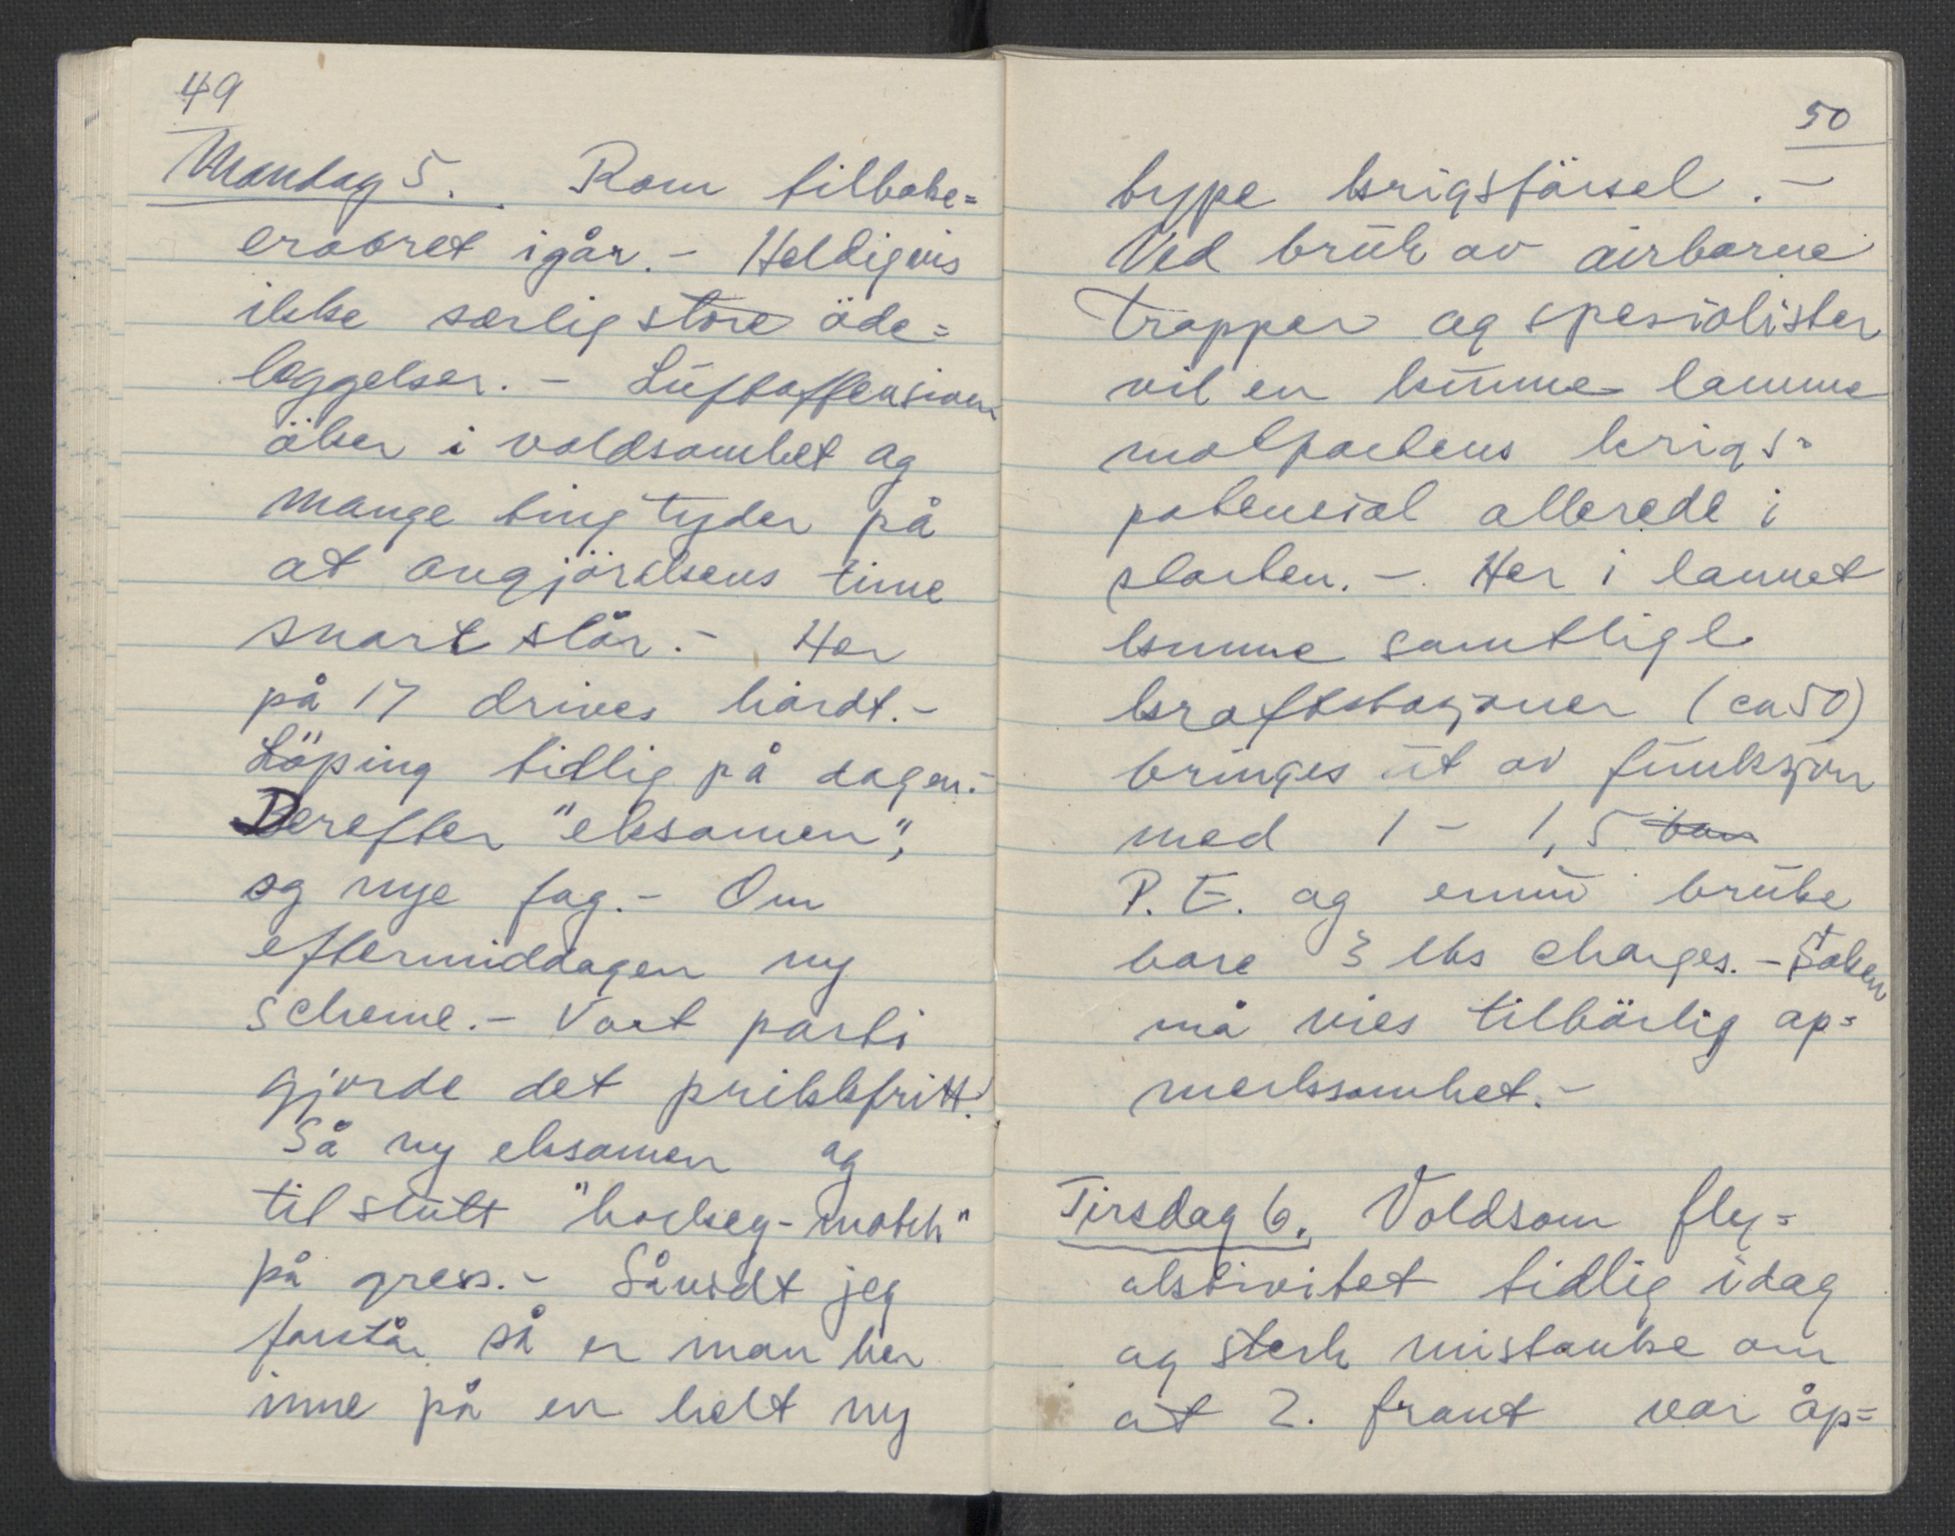 49
Mandag 5. Rom tilbake=
erobret igår. - Heldigvis
ikke særlig store öde=
leggelser. - Luftoffensiven
öker i voldsomhet og
mange ting tyder på
at avgjörelsens time
snart slår. - Her
på 17 drives hardt. -
Löping tidlig på dagen. -
Derefter "eksamen",
og nye fag. - Om
eftermiddagen ny
scheme. - Vort parti
gjorde det prikkfritt.
Så ny eksamen og
til slutt "hockey-match"
på gress. - Såvidt jeg
forstår så er man her
inne på en helt ny
50
type krigsförsel. -
Ved bruk av airborne
tropper og spesialister
vil en kunne lamme
motpartens krigs=
potensial allerede i
starten. - Her i lannet
kunne samtlige
kraftstasjoner (ca 50)
bringes ut av funksjon
med 1 - 1,5 ton
P.E. og ennu bruke
bare 3 lbs charges. - Saken
må vies tilbörlig op=
merksomhet. -
Tirsdag 6. Voldsom fly=
aktivitet tidlig idag
og sterk mistanke om
at 2. front var åp=